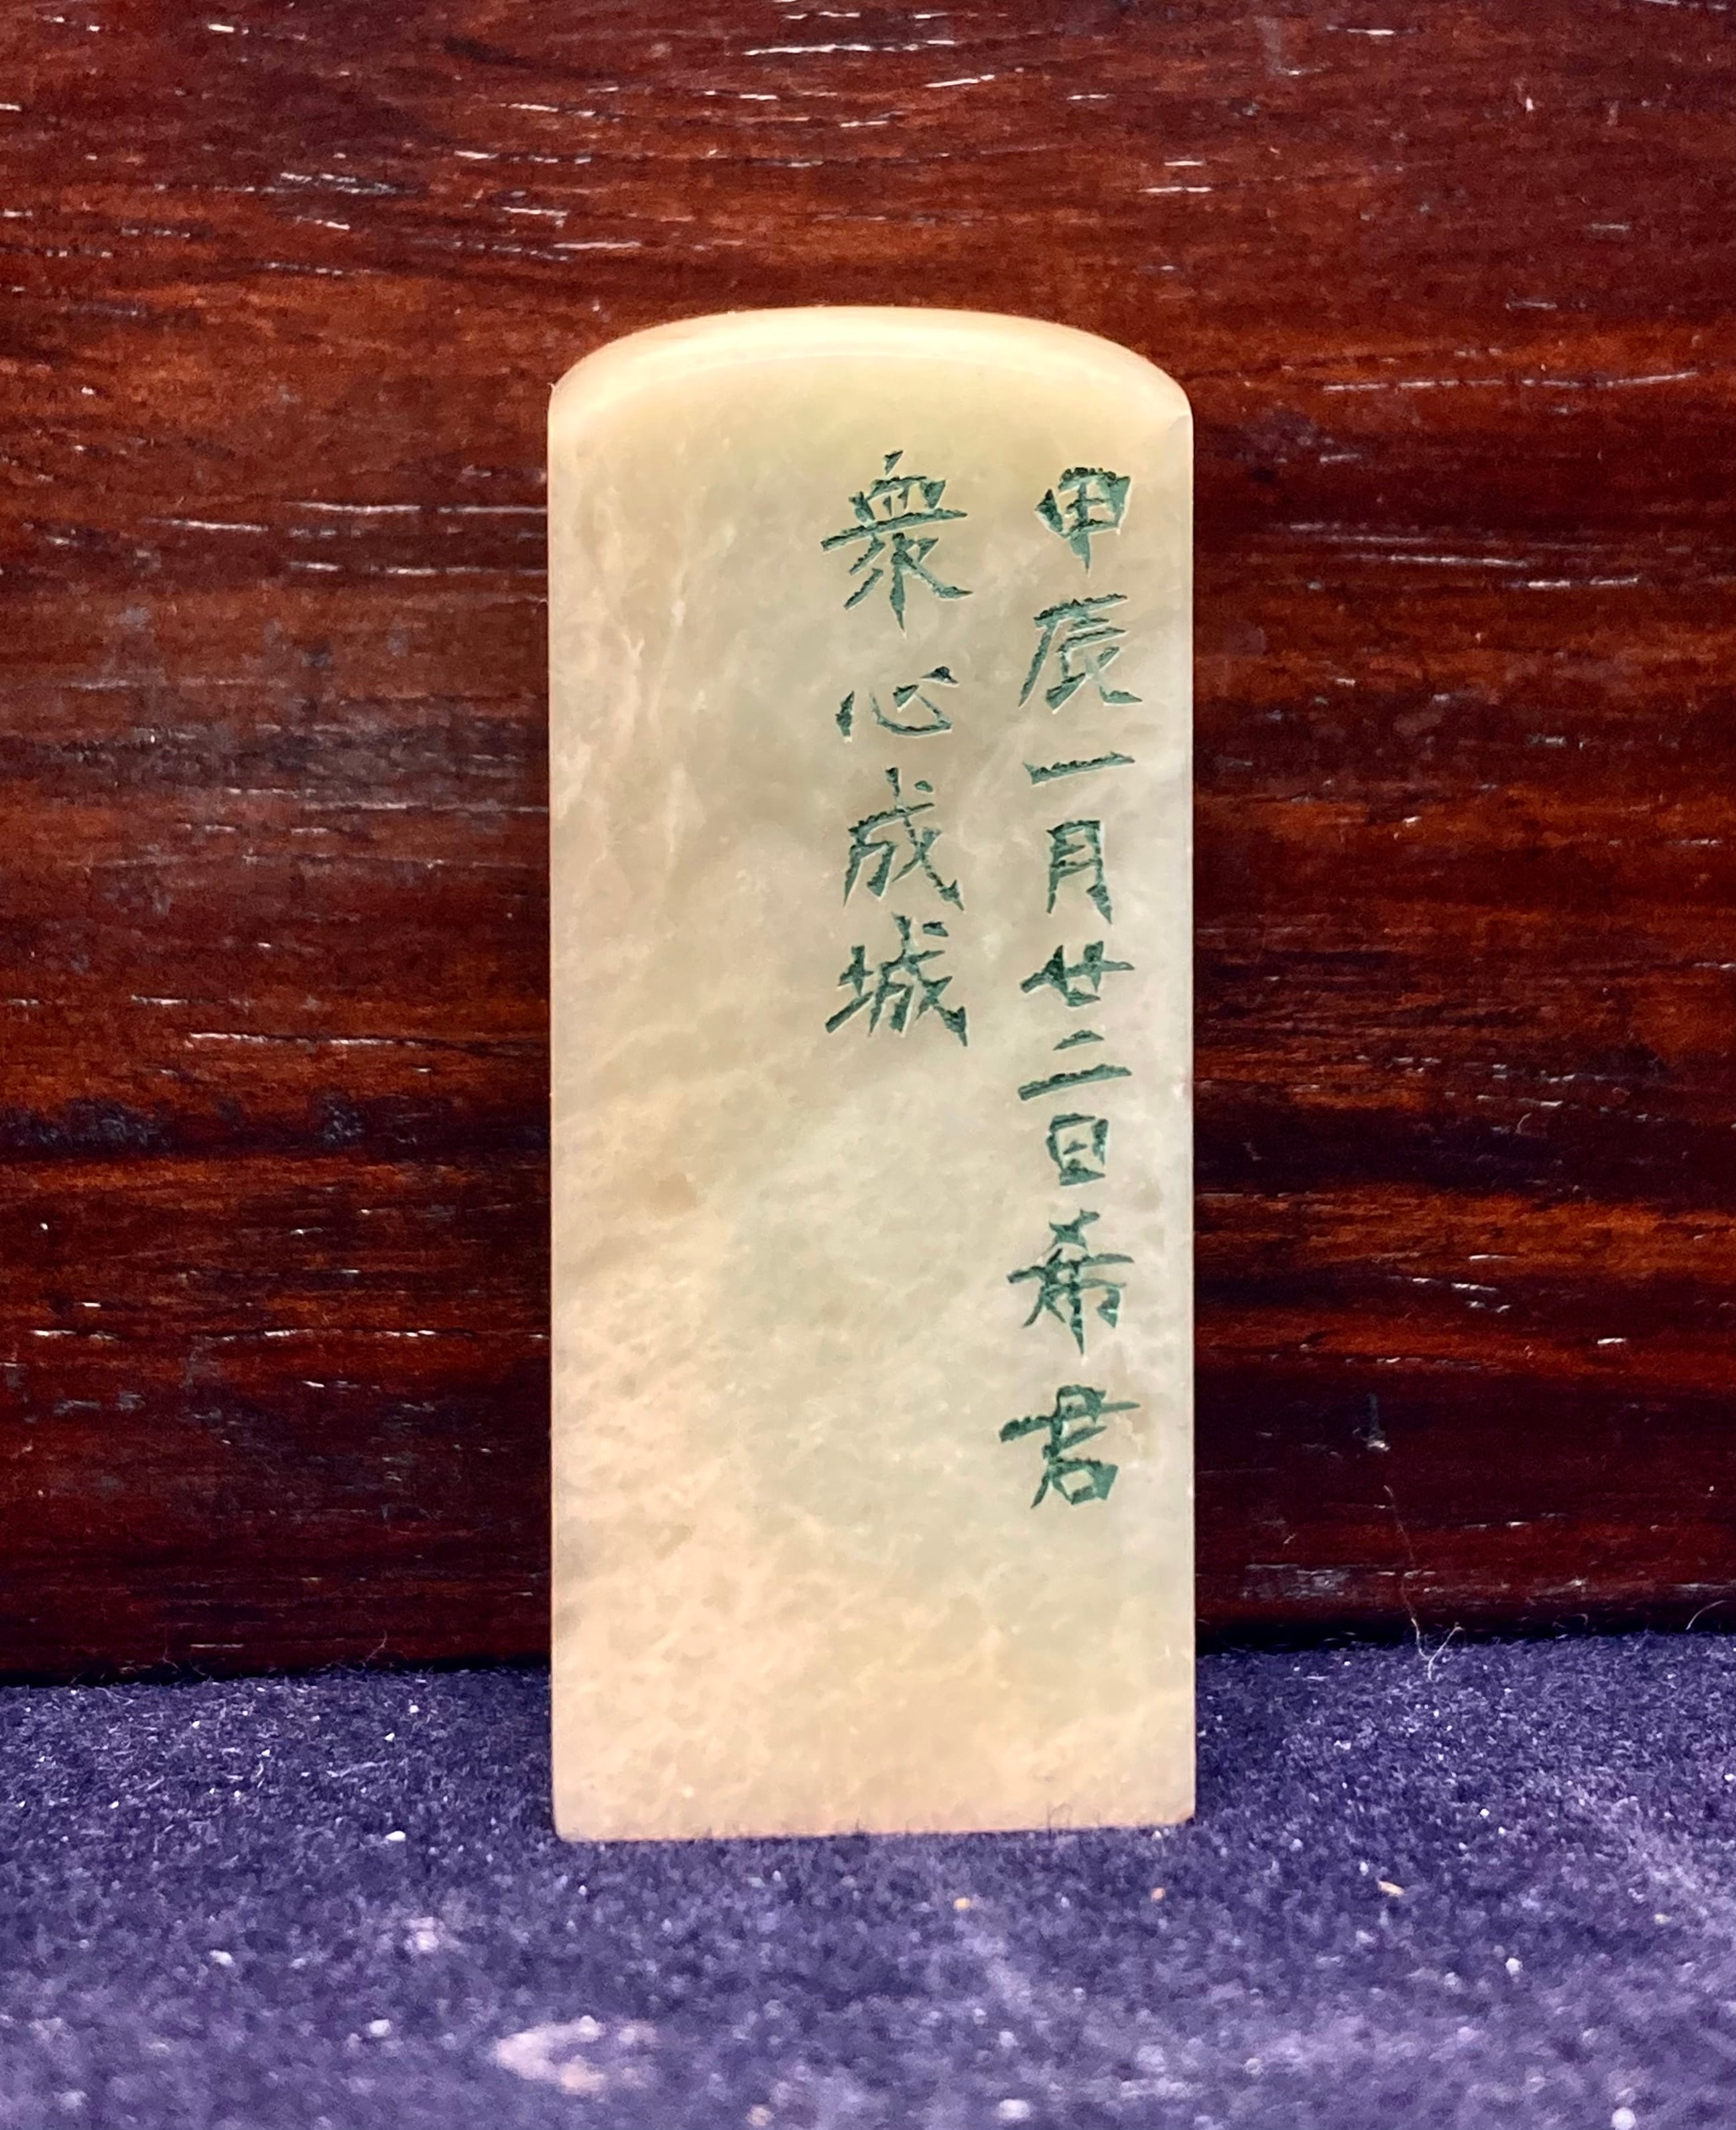 甲辰一月廿二日希君
衆心成城